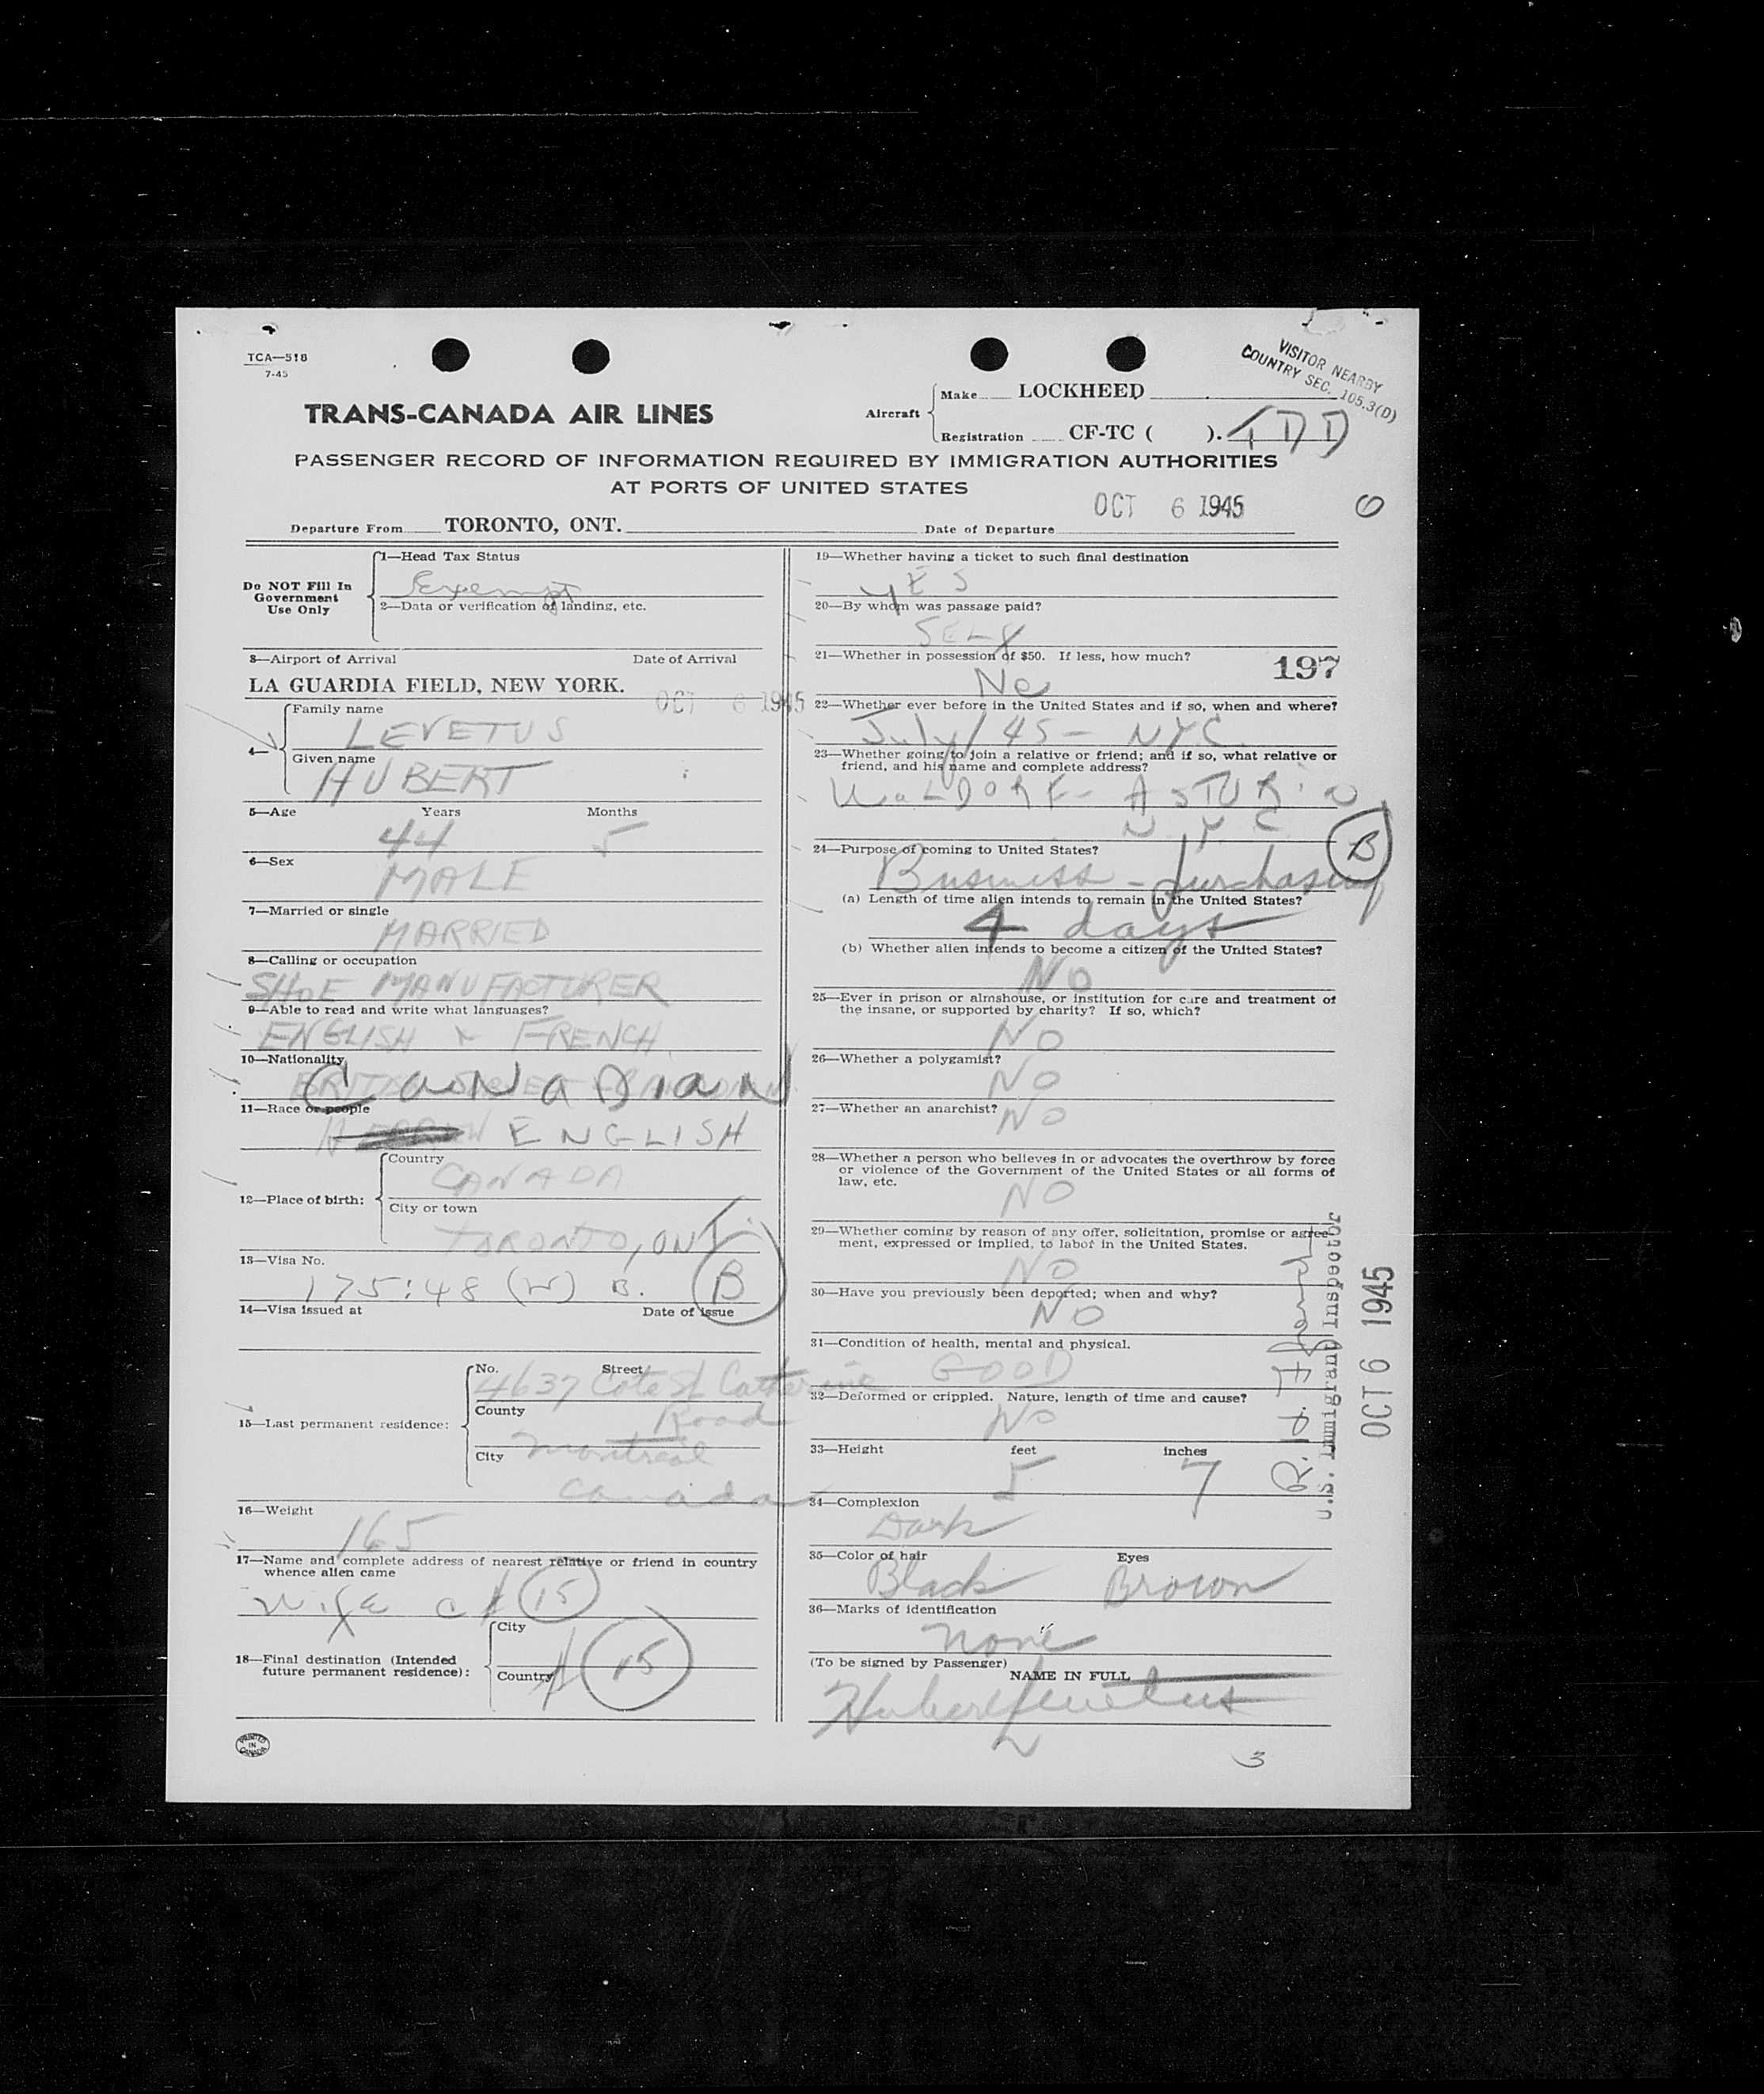 TCA—518
7-45
VISITOR NEARBY
COUNTRY SEC. 105.3(D)
TRANS-CANADA AIR LINES
Aircraft
Make LOCKHEED
Registration CF-TC ( ). TDD
PASSENGER RECORD OF INFORMATION REQUIRED BY IMMIGRATION AUTHORITIES
AT PORTS OF UNITED STATES
OCT 6 1945
6
Departure From TORONTO, ONT. Date of Departure
Do NOT Fill In
Government
Use Only
1—Head Tax Status
Exempt
2—Data or verification of landing, etc.
3—Airport of Arrival Date of Arrival
LA GUARDIA FIELD, NEW YORK. OCT 6 1945
4—
Family name
LEVETUS
Given name
HUBERT
5—Age Years Months
44 5
6—Sex
MALE
7—Married or single
MARRIED
8—Calling or occupation
SHOE MANUFACTURER
9—Able to read and write what languages?
ENGLISH & FRENCH
10—Nationality
CANADIAN
11—Race or people
ENGLISH
12—Place of birth:
Country
CANADA
City or town
TORONTO, ONT.
13—Visa No.
175:48 (W) B. B
14—Visa issued at Date of issue
15—Last permanent residence:
No. Street
4637 Cote St Catherine
County
Road
City Montreal
Canada
16—Weight
165
17—Name and complete address of nearest relative or friend in country
whence alien came
Wife c/ 15
18—Final destination (Intended
future permanent residence):
City
Country # 15
PRINTED
IN
CANADA
19—Whether having a ticket to such final destination
YES
20—By whom was passage paid?
SELF
21—Whether in possession of $50. If less, how much?
197
No
22—Whether ever before in the United States and if so, when and where?
July/45 - NYC
23—Whether going to join a relative or friend; and if so, what relative or
friend, and his name and complete address?
WALDORF-ASTORIA
N.Y.C.
B
24—Purpose of coming to United States?
Business - purchasing
(a) Length of time alien intends to remain in the United States?
4 days
(b) Whether alien intends to become a citizen of the United States?
NO
25—Ever in prison or almshouse, or institution for care and treatment of
the insane, or supported by charity? If so, which?
NO
26—Whether a polygamist?
NO
27—Whether an anarchist?
NO
28—Whether a person who believes in or advocates the overthrow by force
or violence of the Government of the United States or all forms of
law, etc.
NO
29—Whether coming by reason of any offer, solicitation, promise or agree-
ment, expressed or implied, to labor in the United States.
NO
30—Have you previously been deported; when and why?
NO
31—Condition of health, mental and physical.
GOOD
32—Deformed or crippled. Nature, length of time and cause?
NO
33—Height feet inches
5 7
34—Complexion
Dark
35—Color of hair Eyes
Black Brown
36—Marks of identification
none
(To be signed by Passenger)
NAME IN FULL
Hubert Levetus
3
U.S. Immigrant Inspector
OCT 6 1945